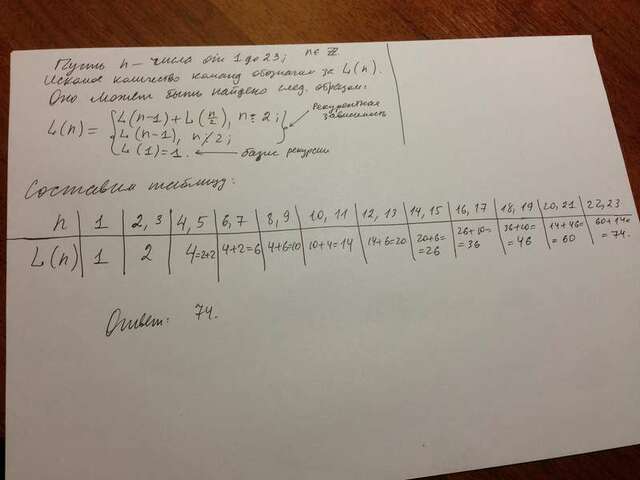 Пусть n – числа от 1 до 23; n ∈ ℤ.
Искомое количество команд обозначим за L(n).
Оно может быть найдено след. образом:
L(n) = { L(n-1) + L(n/2), n ⋮ 2; } Рекурентная зависимость
L(n-1), n ⋮̸ 2;
L(1) = 1. ← базис рекурсии
Составим таблицу:
n | 1 | 2, 3 | 4, 5 | 6, 7 | 8, 9 | 10, 11 | 12, 13 | 14, 15 | 16, 17 | 18, 19 | 20, 21 | 22, 23
L(n) | 1 | 2 | 4=2+2 | 4+2=6 | 4+6=10 | 10+4=14 | 14+6=20 | 20+6= =26 | 26+10= =36 | 36+10= =46 | 14+46= =60 | 60+14= =74.
Ответ: 74.